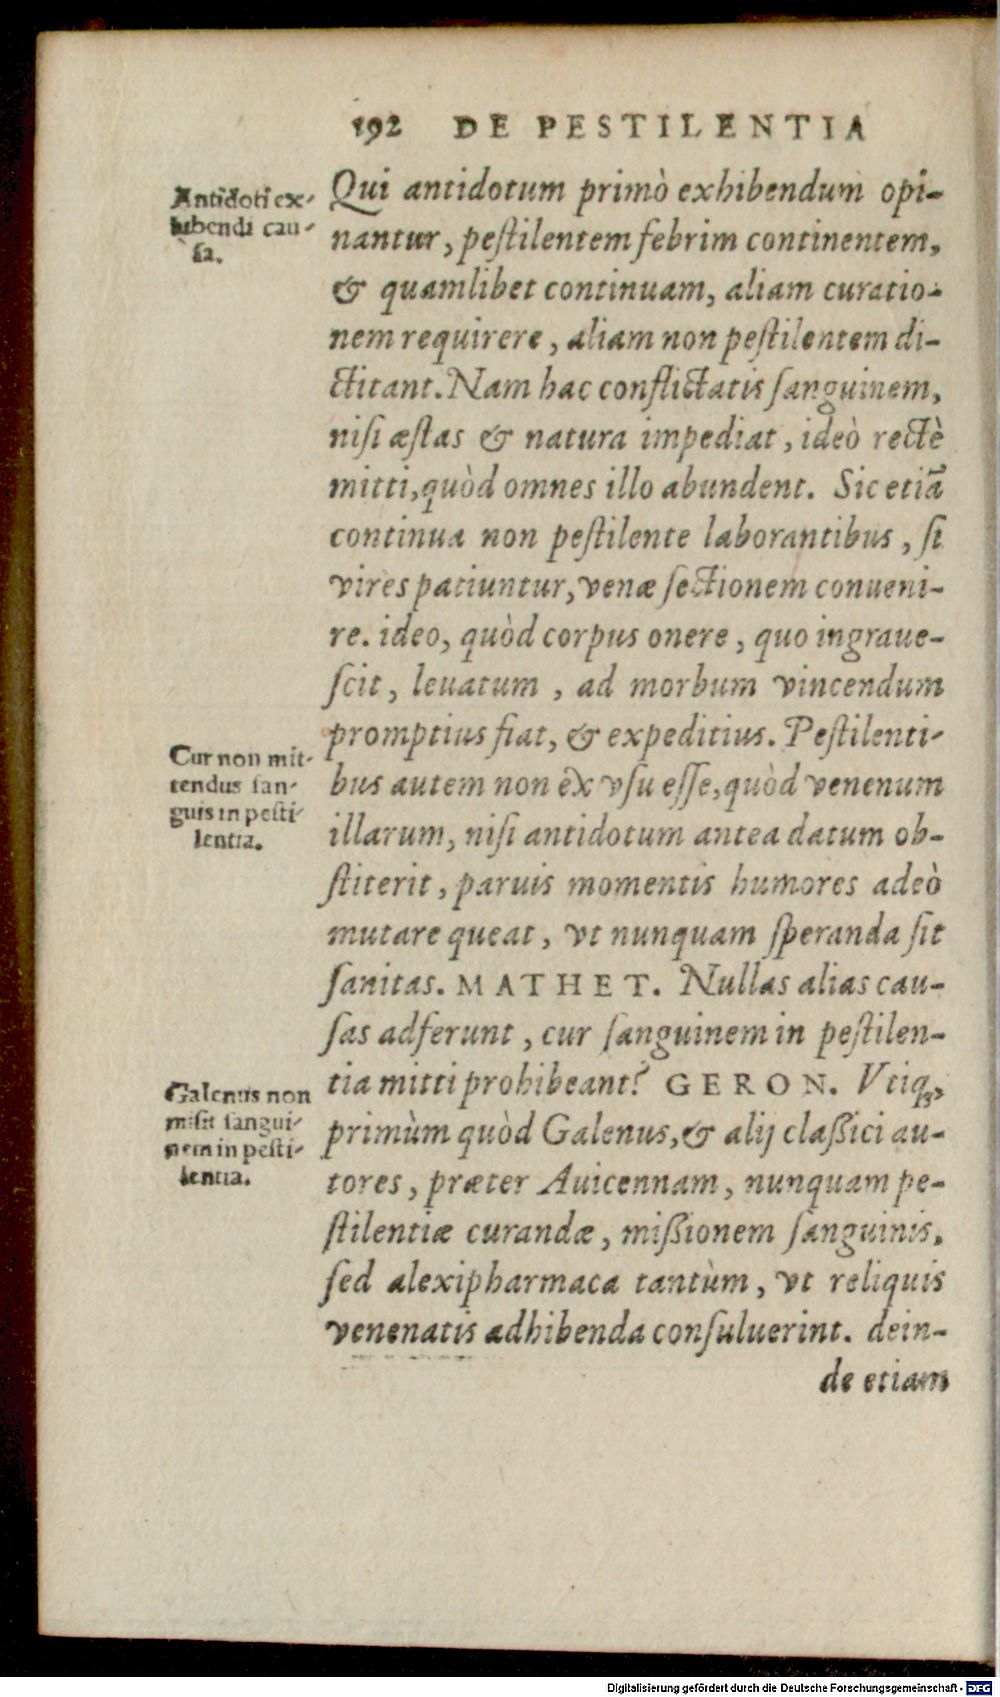 192 DE PESTILENTIA
Antidoti ex-
hibendi cau-
sa.
Qui antidotum primò exhibendum opi-
nantur, pestilentem febrim continentem,
& quamlibet continuam, aliam curatio-
nem requirere, aliam non pestilentem di-
ctitant. Nam hac conflictatis sanguinem,
nisi æstas & natura impediat, ideò rectè
mitti, quòd omnes illo abundent. Sic etiā
continua non pestilente laborantibus, si
vires patiuntur, venæ sectionem conueni-
re. ideo, quòd corpus onere, quo ingraue-
scit, leuatum, ad morbum vincendum
promptius fiat, & expeditius. Pestilenti-
Cur non mit-
tendus san-
guis in pesti-
lentia.
bus autem non ex vsu esse, quòd venenum
illarum, nisi antidotum antea datum ob-
stiterit, paruis momentis humores adeò
mutare queat, vt nunquam speranda sit
sanitas. MATHET. Nullas alias cau-
sas adferunt, cur sanguinem in pestilen-
tia mitti prohibeant? GERON. Vtiq;
Galenus non
misit sangui-
nem in pesti-
lentia.
primùm quòd Galenus, & alij claßici au-
tores, præter Auicennam, nunquam pe-
stilentiæ curandæ, mißionem sanguinis,
sed alexipharmaca tantùm, vt reliquis
venenatis adhibenda consuluerint. dein-
de etiam
Digitalisierung gefördert durch die Deutsche Forschungsgemeinschaft - DFG